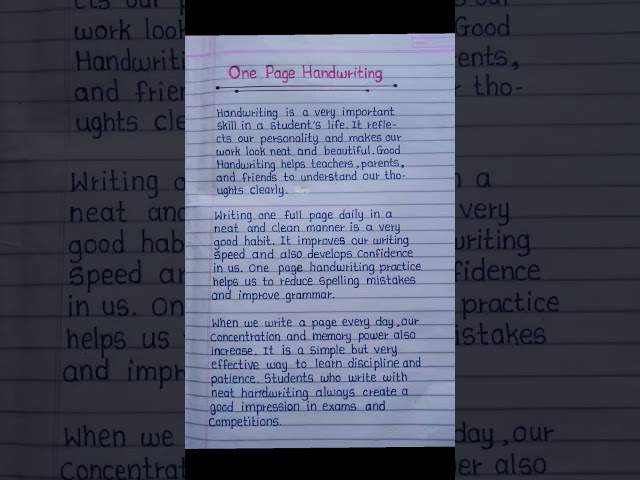 One Page Handwriting
Handwriting is a very important
skill in a student's life. It refle-
cts our personality and makes our
work look neat and beautiful. Good
Handwriting helps teachers, parents,
and friends to understand our tho-
ughts clearly.
Writing one full page daily in a
neat and clean manner is a very
good habit. It improves our writing
speed and also develops confidence
in us. One page handwriting practice
helps us to reduce spelling mistakes
and improve grammar.
When we write a page every day, our
concentration and memory power also
increase. It is a simple but very
effective way to learn discipline and
patience. Students who write with
neat handwriting always create a
good impression in exams and
competitions.